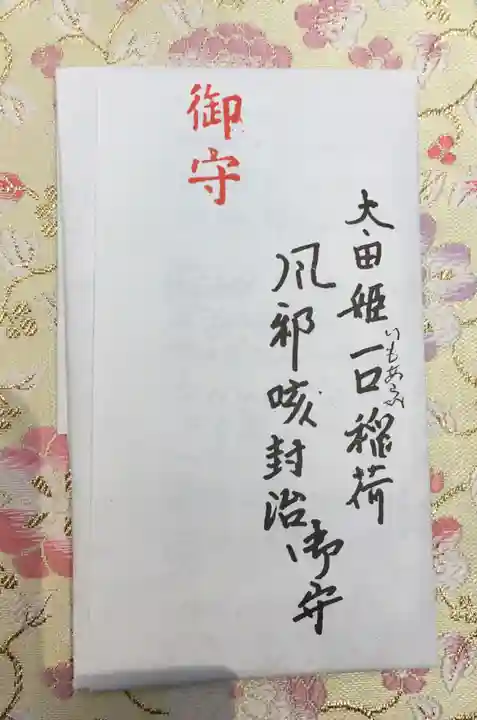 大田姫一口稲荷
いもあらい
風邪咳封治御守
御守